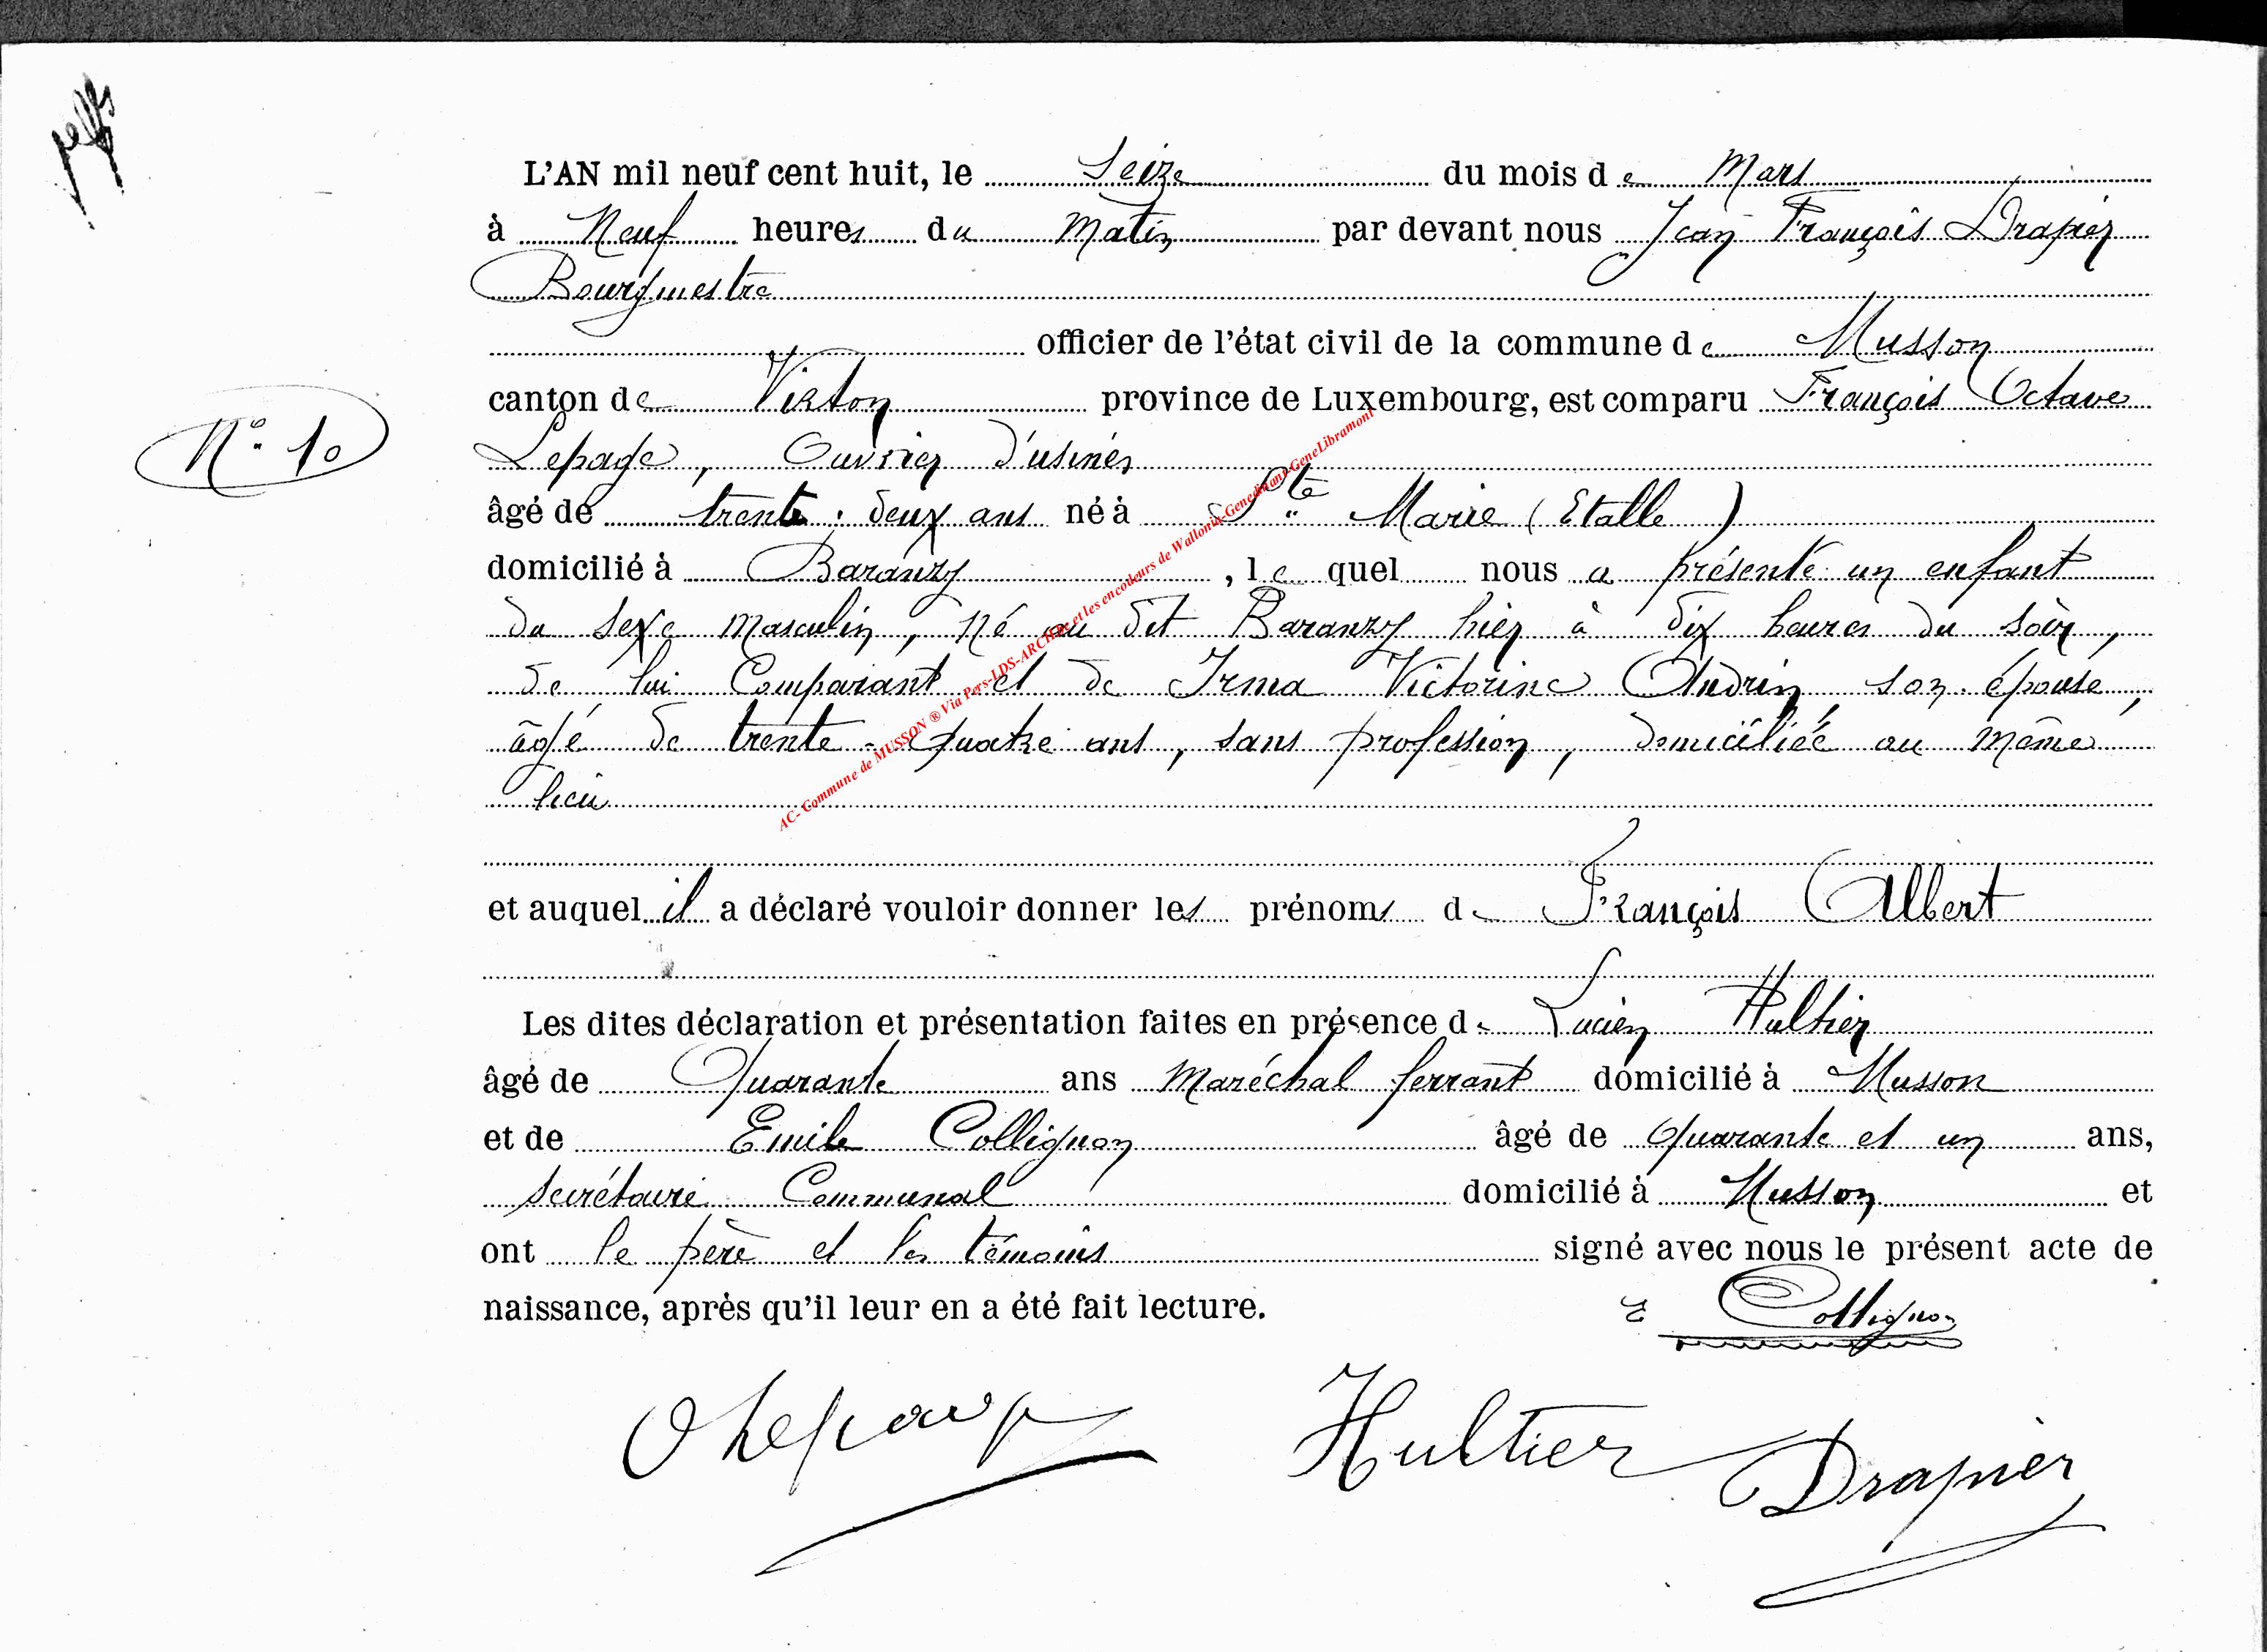 L'AN mil neuf cent huit, le Seize du mois de Mars
à Neuf heures du Matin par devant nous Jean François Drapier
Bourgmestre
officier de l'état civil de la commune de Musson
canton de Virton province de Luxembourg, est comparu François Octave
N° 10
Lepage, Ouvrier d'usines
âgé de trente-deux ans né à Ste Marie (Etalle)
domicilié à Baranzy, lequel nous a présenté un enfant
du sexe Masculin, né au dit Baranzy hier à dix heures du soir,
de lui Comparant et de Irma Victorine Andrin, son épouse,
âgé de trente-quatre ans, sans profession, domiciliée au même
lieu
et auquel il a déclaré vouloir donner les prénoms de François Albert
Les dites déclaration et présentation faites en présence de Lucien Hultier
âgé de Quarante ans Maréchal ferrant domicilié à Musson
et de Emile Collignon âgé de Quarante et un ans,
secrétaire Communal domicilié à Musson et
ont le père et les témoins signé avec nous le présent acte de
naissance, après qu'il leur en a été fait lecture.
E Collignon
O Lepage Hultier Drapier
AC- Commune de MUSSON ® Via Pers-LDS-ARCH et les encodeurs de Wallonia-Genedinant-GeneLibramont